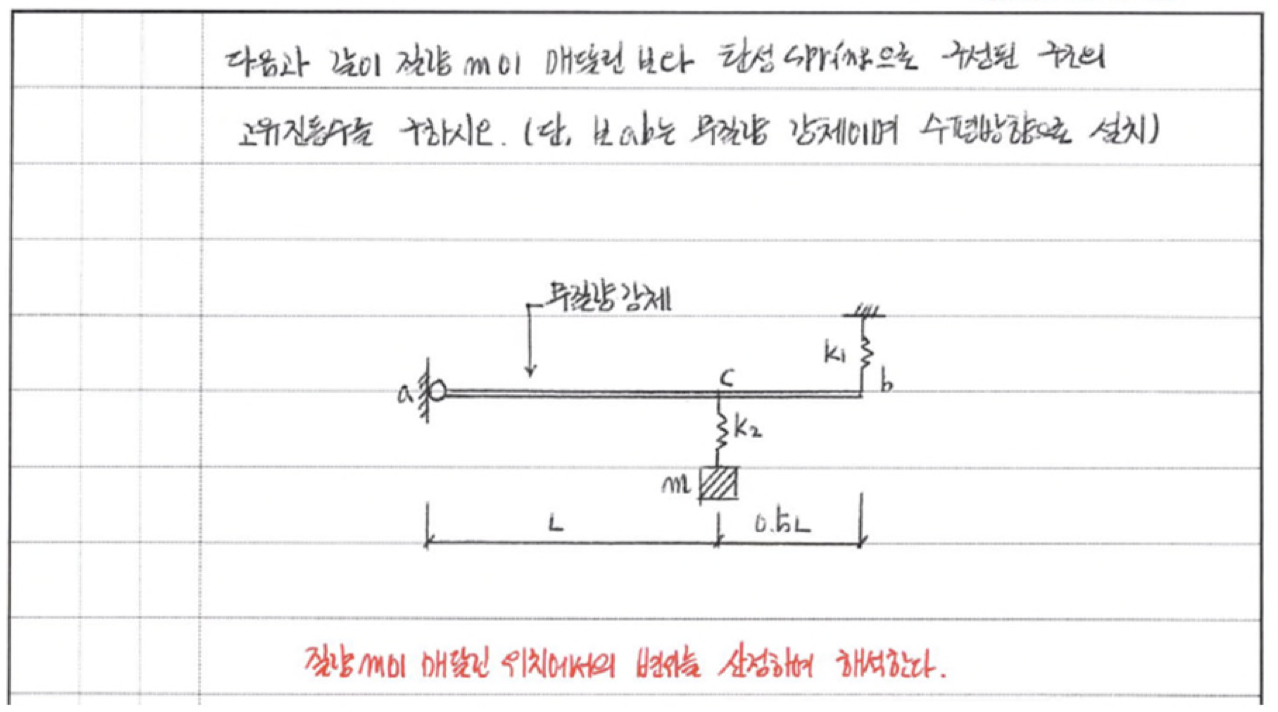 다음과 같이 질량 m이 매달린 보와 탄성 spring으로 구성된 구조의
고유진동수를 구하시오. (단, 보 ab는 무질량 강체이며 수평방향으로 설치)
무질량강체
k1
a
c
b
k2
m
L
0.5L
질량 m이 매달린 위치에서의 변위를 산정하여 해석한다.